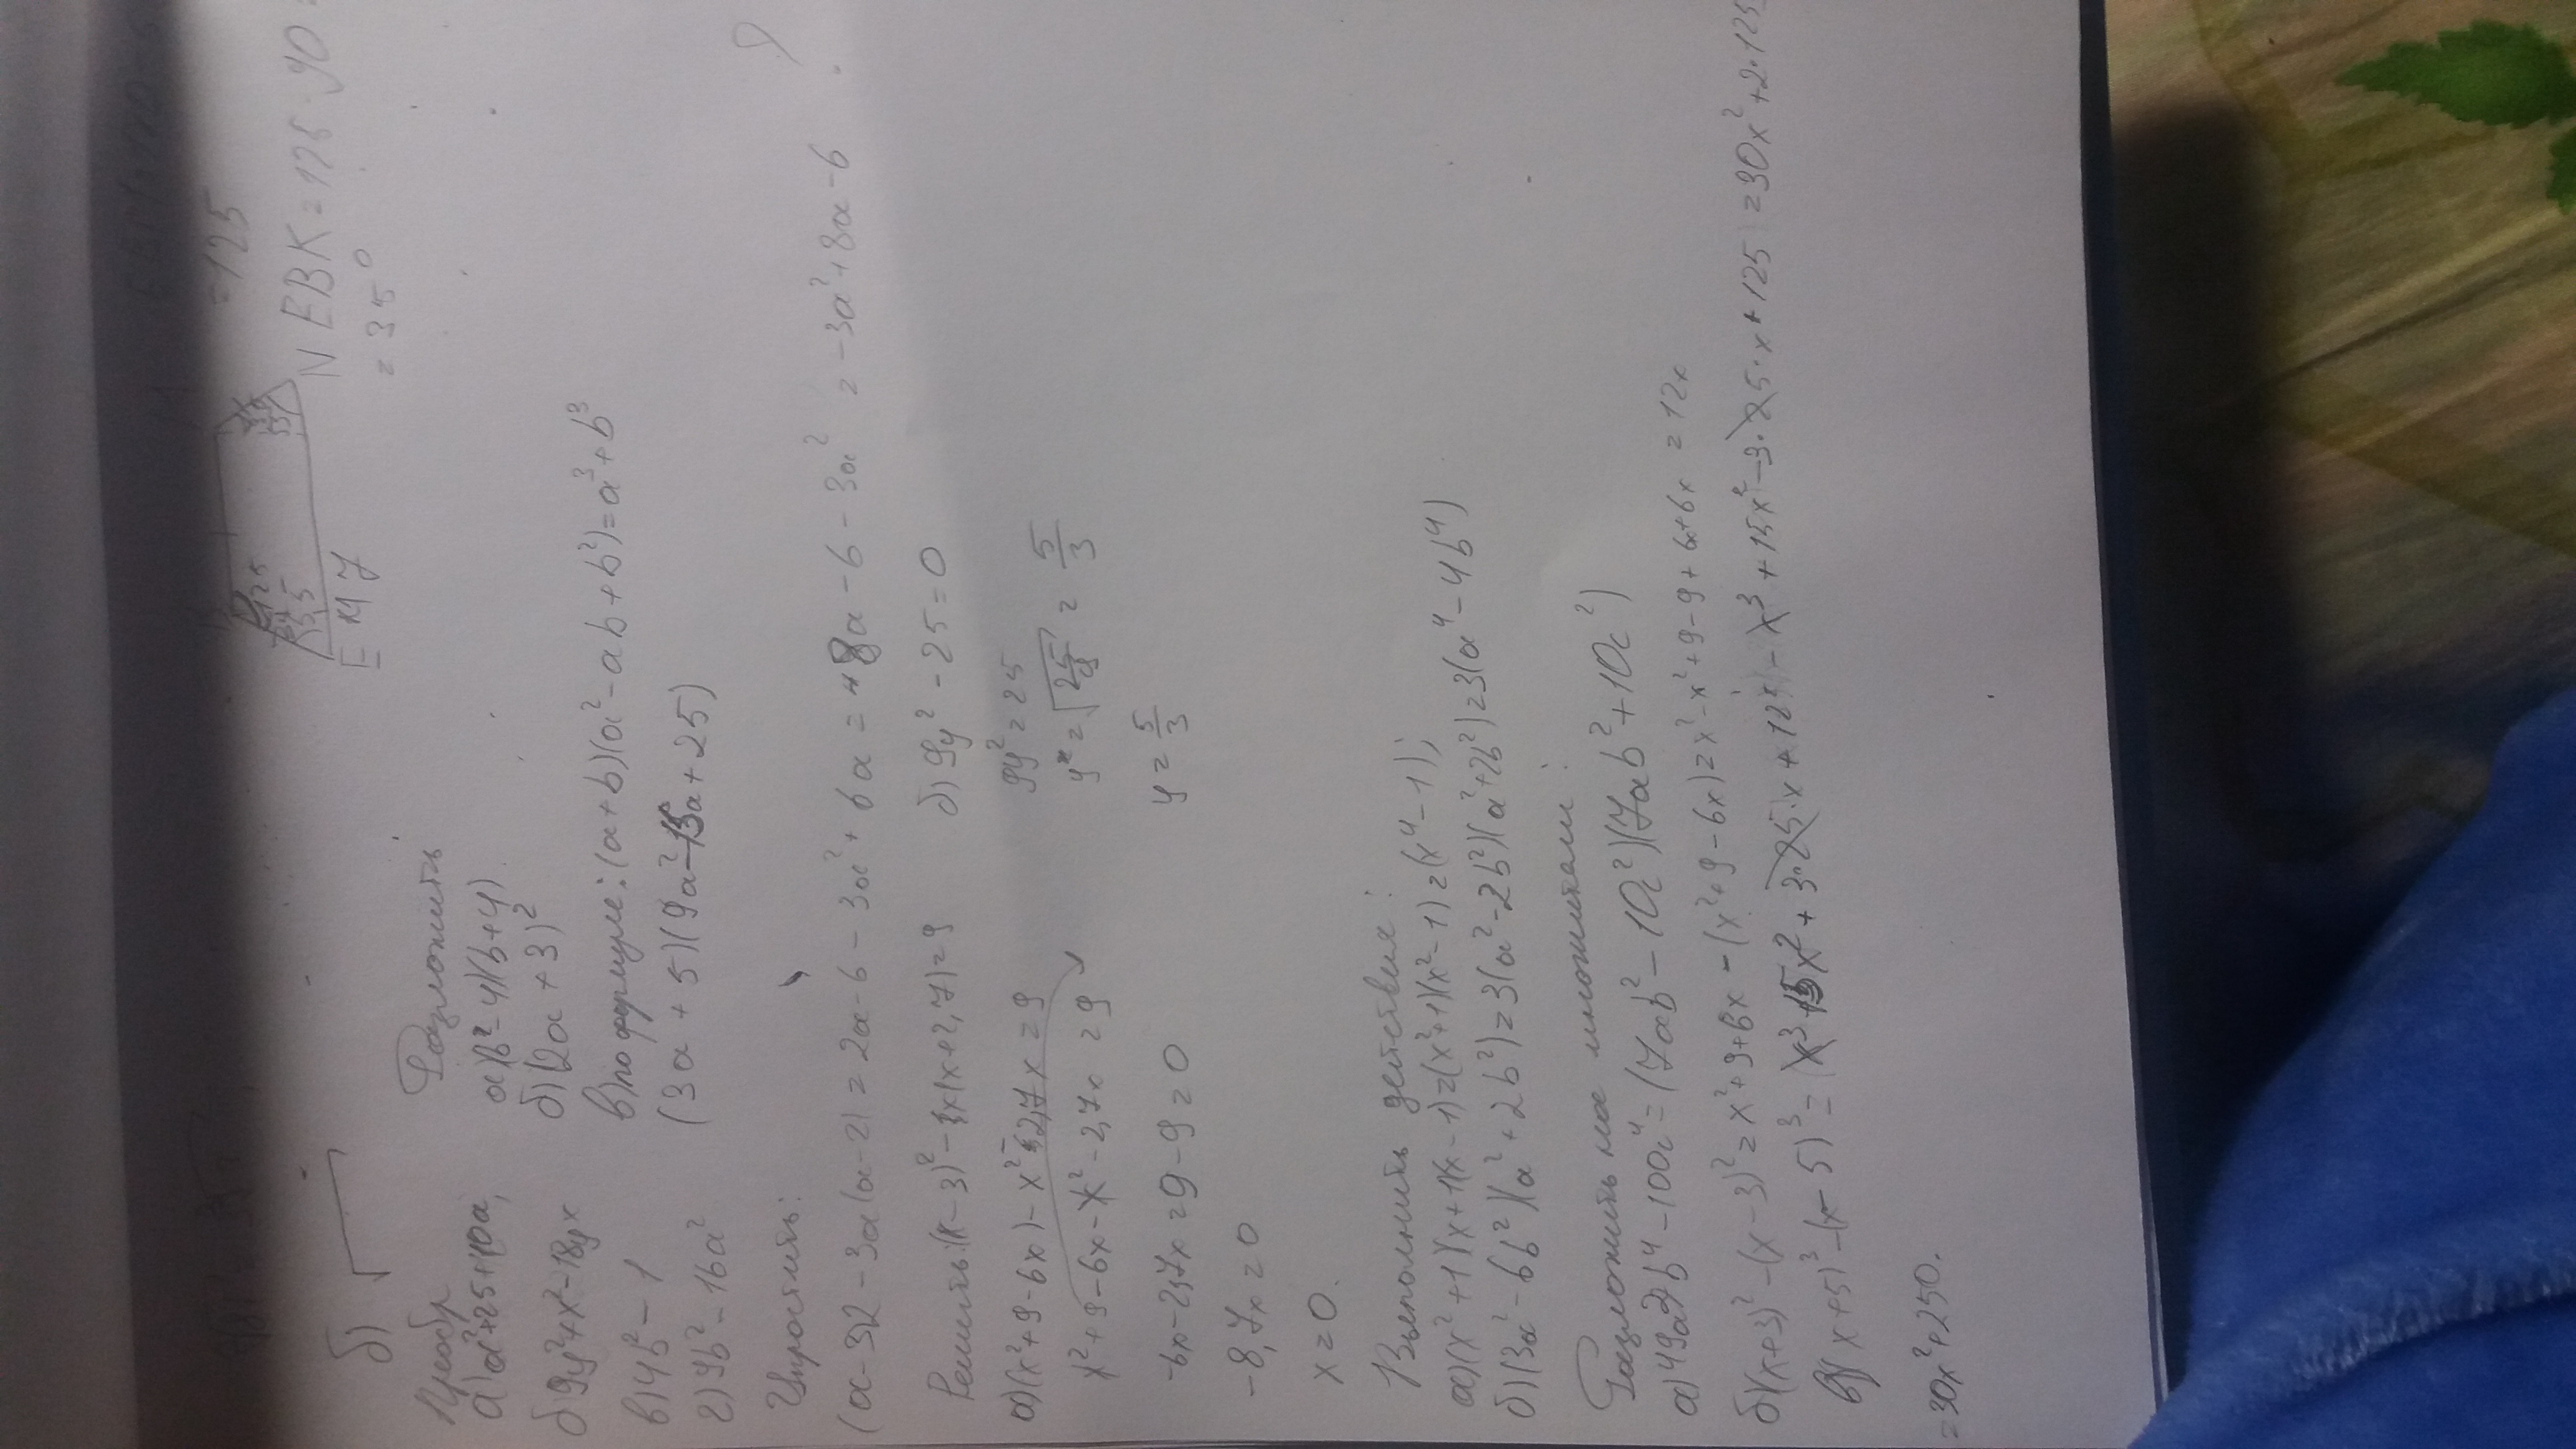 = 125
N EBK = 125 - 90 =
= 35°
E
47
б)
Преобр
а) a²+25+10a;
б) 9y²+x²-18yx
в) 4b²-1
г) 9b²-16a²
Разложить
а) (b-4)(b+4)
б) (2a+3)²
в) по формуле: (a+b)(a²-ab+b²)=a³+b³
(3a+5)(9a²-15a+25)
Упростить:
(a-3)2-3a(a-2)=2a-6-3a²+6a=8a-6-3a²=-3a²+8a-6
Решить: (x-3)²-x(x+2,7)=9
а) (x²+9-6x)-x²-2,7x=9
x²+9-6x-x²-2,7x=9
-6x-2,7x=9-9=0
-8,7x=0
x=0.
б) 9y²-25=0
9y²=25
y=√25/9=5/3
y=5/3
Выполнить действия:
а) (x²+1)(x+1)(x-1)=(x²+1)(x²-1)=(x⁴-1);
б) (3a²-6b²)(a²+2b²)=3(a²-2b²)(a²+2b²)=3(a⁴-4b⁴)
Разложить на множители:
а) 49a²b⁴-100c⁴=(7ab²-10c²)(7ab²+10c²)
б) (x+3)²-(x-3)²=x²+9+6x-(x²+9-6x)=x²-x²+9-9+6x+6x=12x
в) (x+5)³-(x-5)³=x³+15x²+3·25·x+125-x³+15x²-3·25·x+125=30x²+2·125=
=30x²+250.